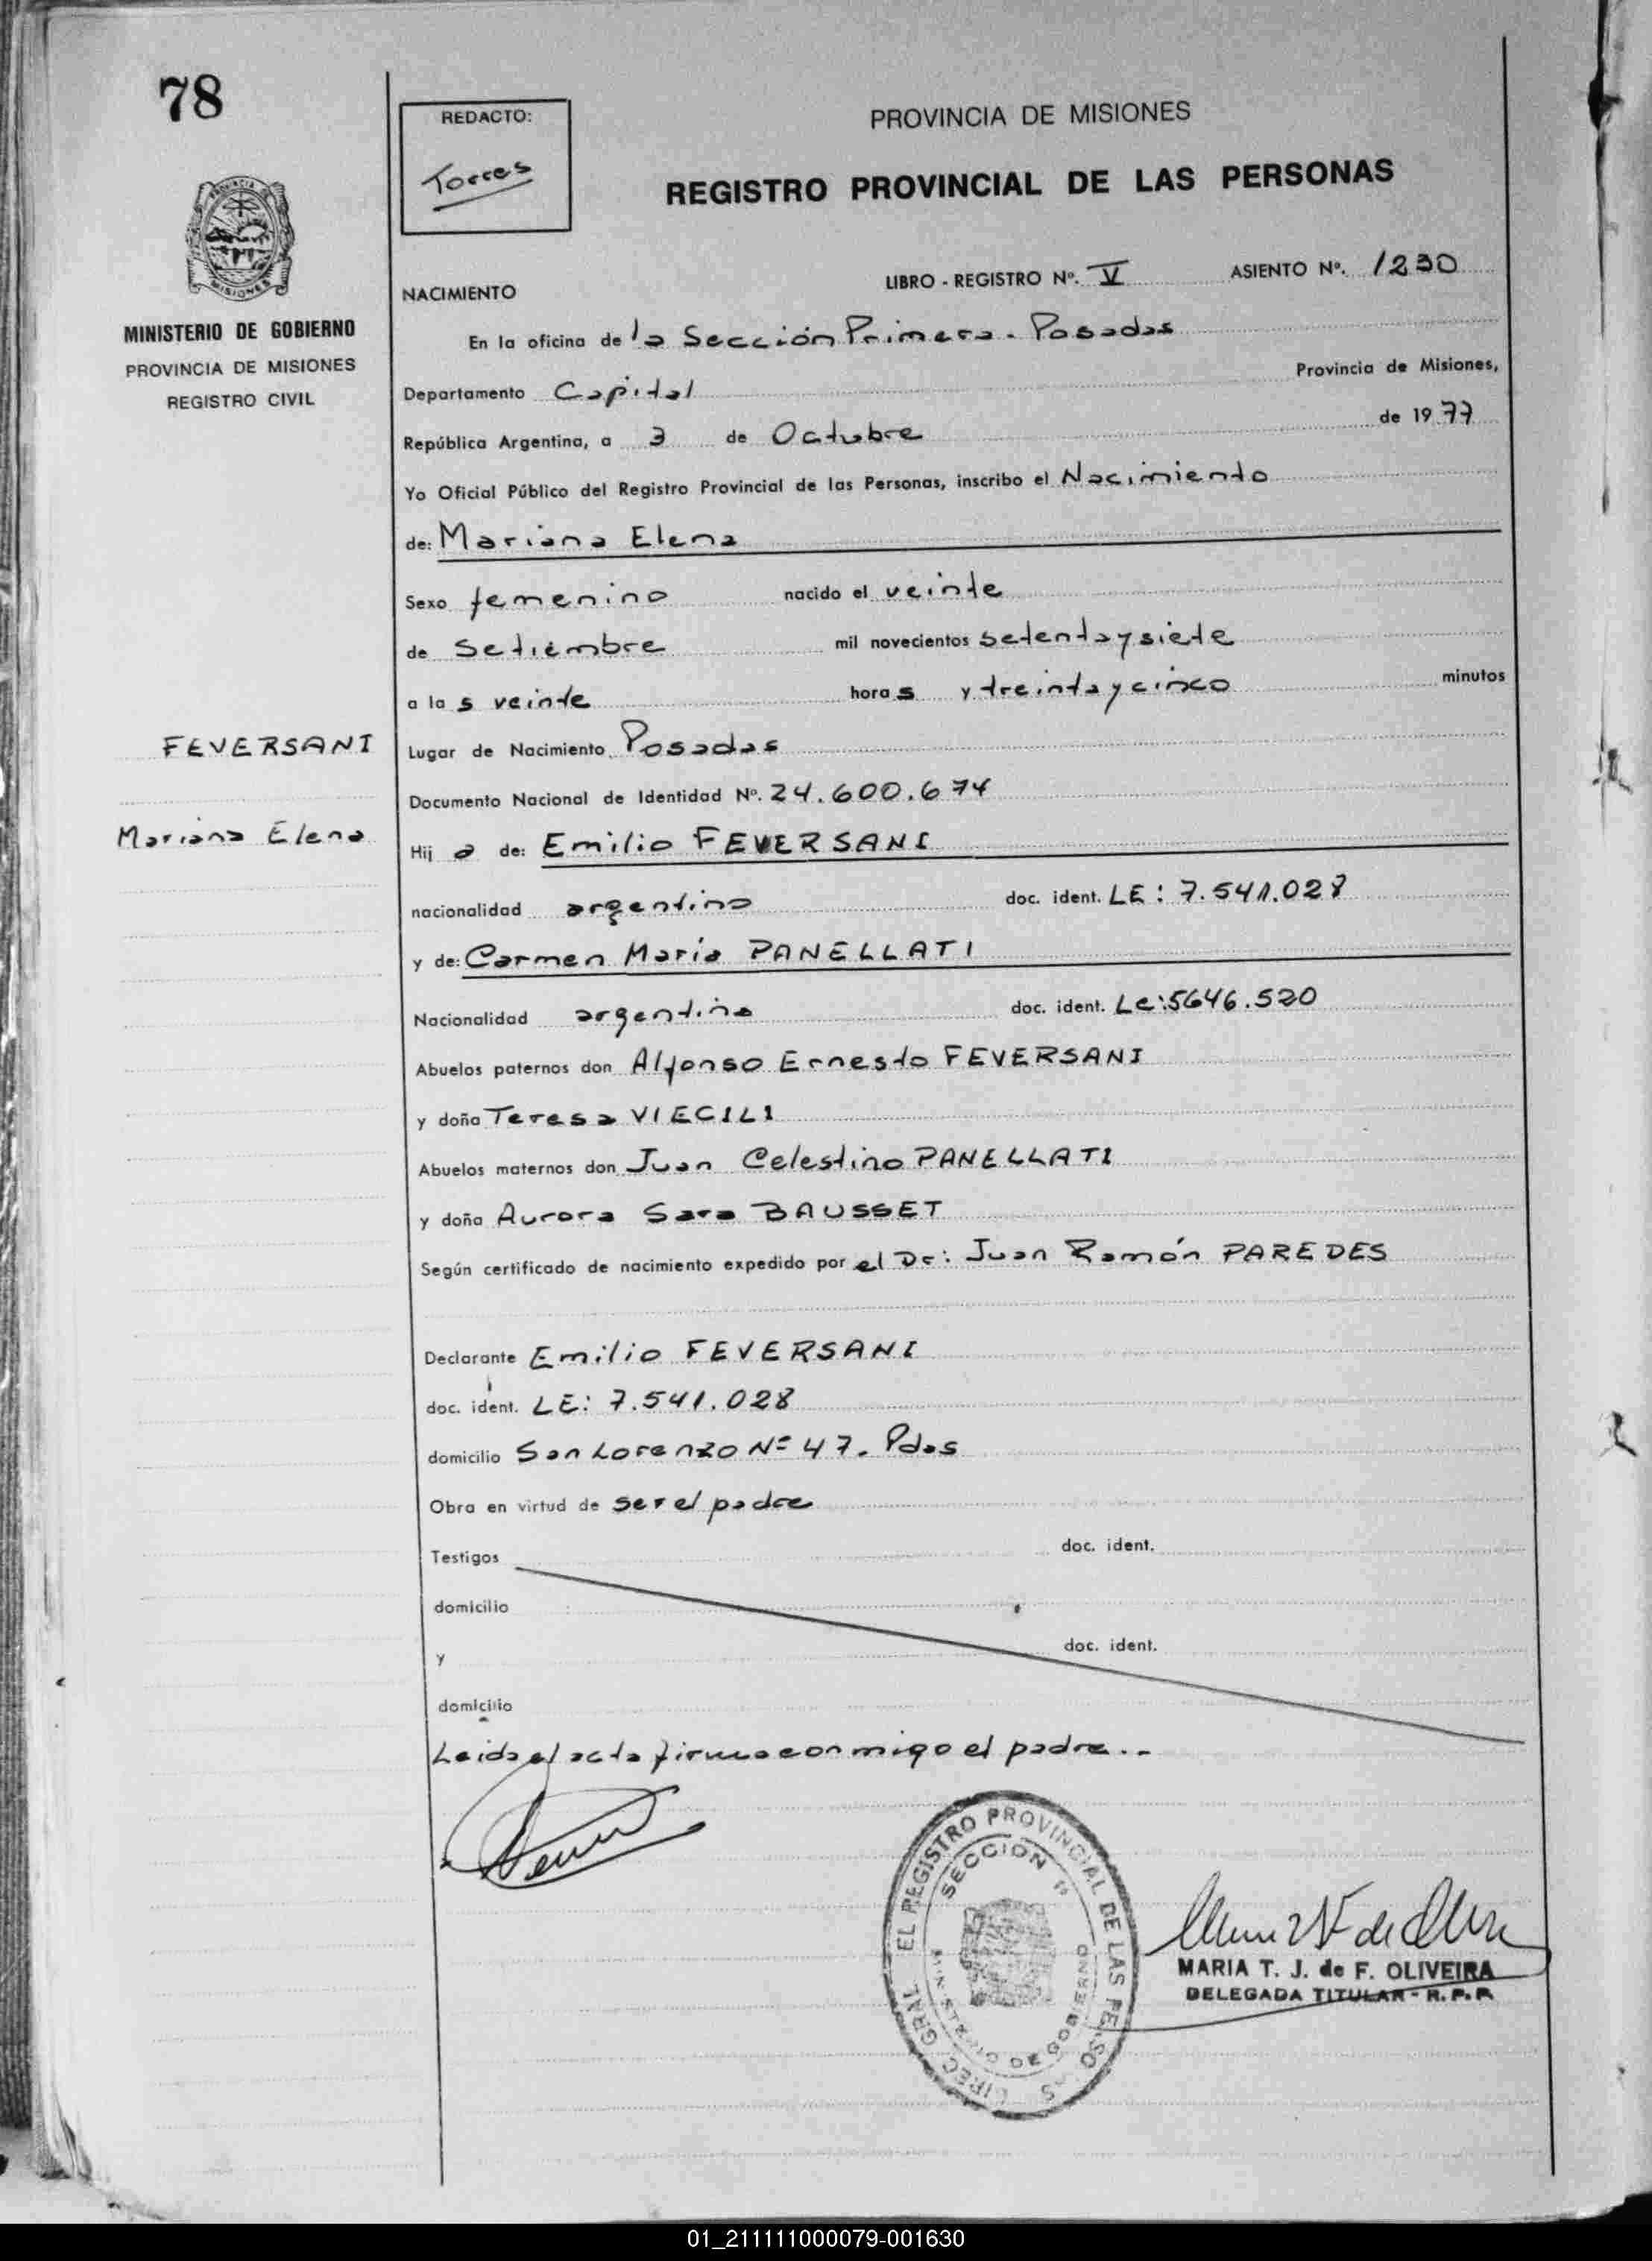 78
REDACTO:
Torres
PROVINCIA DE MISIONES
REGISTRO PROVINCIAL DE LAS PERSONAS
MISIONES
MINISTERIO DE GOBIERNO
PROVINCIA DE MISIONES
REGISTRO CIVIL
LIBRO - REGISTRO Nº. V ASIENTO Nº. 1230
NACIMIENTO
En la oficina de la Sección Primera - Posadas
Departamento Capital Provincia de Misiones,
República Argentina, a 3 de Octubre de 1977
Yo Oficial Público del Registro Provincial de las Personas, inscribo el Nacimiento
de: Mariana Elena
Sexo femenino nacido el veinte
de Setiembre mil novecientos setenta y siete
a las veinte horas y treinta y cinco minutos
FEVERSANI
Mariana Elena
Lugar de Nacimiento Posadas
Documento Nacional de Identidad Nº. 24.600.674
Hija de: Emilio FEVERSANI
nacionalidad argentino doc. ident. LE: 7.541.028
y de: Carmen Maria PANELLATI
Nacionalidad argentina doc. ident. Lc: 5646.520
Abuelos paternos don Alfonso Ernesto FEVERSANI
y doña Teresa VIECILI
Abuelos maternos don Juan Celestino PANELLATI
y doña Aurora Sara BAUSSET
Según certificado de nacimiento expedido por el Dr: Juan Ramón PAREDES
Declarante Emilio FEVERSANI
doc. ident. LE: 7.541.028
domicilio San Lorenzo Nº 47. Pdas
Obra en virtud de ser el padre
Testigos doc. ident.
domicilio
y doc. ident.
domicilio
Leida el acta firma conmigo el padre.-
EL REGISTRO PROVINCIAL DE LAS PERSONAS
SECCION
DE GOBIERNO
MARIA T. J. de F. OLIVEIRA
DELEGADA TITULAR - R. P. P.
01_211111000079-001630